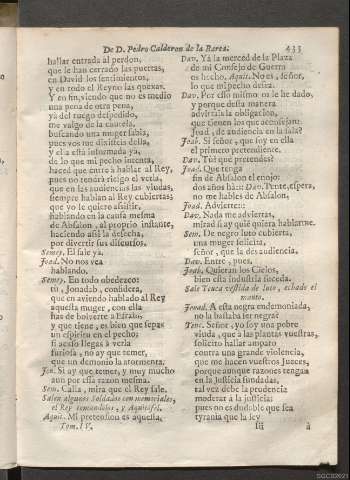 De D. Pedro Calderon de la Barca. 433
hallar entrada al perdon,
que le han cerrado las puertas,
en David los sentimientos,
y en todo el Reyno las quexas.
Y en fin, viendo que no es medio
una pena de otra pena,
ya del ruego despedido,
me valgo de la cautela,
buscando una muger sabia,
pues vos me disteis della,
y ella está informada ya,
de lo que mi pecho intenta,
haced que entre à hablar al Rey,
pues no tendrá riesgo el verla,
que en las audiencias las viudas,
siempre hablan al Rey cubiertas;
que yo le quiero assistir,
hablando en la causa mesma
de Absalon, al proprio instante,
haciendo assi la desecha,
por divertir sus discursos.
Semey. El sale ya.
Joad. No nos vea
hablando.
Semey. En todo obedezco:
tù, Jonadab, considera,
que en aviendo hablado al Rey
aquesta muger, con ella
has de bolverte à Efraim,
y que tiene, es bien que sepas
un espiritu en el pecho;
si acaso llegas à verla
furiosa, no ay que temer,
que un demonio la atormenta.
Jon. Si ay que temer, y mucho
aun por essa razon mesma.
Sem. Calla, mira que el Rey sale.
Salen algunos Soldados con memoriales,
el Rey tomandolos, y Aquitofel.
Aquit. Mi pretension es aquesta,
Tom. IV.
Dav. Yá la merced de la Plaza
de mi Consejo de Guerra
os hecho. Aquit. No es, señor,
lo que mi pecho desea.
Dav. Por esso mismo os le he dado,
y porque desta manera
advirtais la obligacion,
que tienen los que aconsejan:
Joad, de audiencia en la sala?
Joad. Si señor, que soy en ella
el primero pretendiente.
Dav. Tù? què pretendes?
Joad. Que tenga
fin de Absalon el enojo:
dos años há:: Dav. Tente, espera,
no me hables de Absalon.
Joad. Advierte::
Dav. Nada me adviertas,
mirad si ay quié quiera hablarme.
Sem. De negro luto cubierta,
una muger solicita,
señor, que la dès audiencia.
Dav. Entre, pues.
Joad. Quieran los Cielos,
bien esta industria suceda.
Sale Teuca vestida de luto, echado el
manto.
Jonad. A esta negra endemoniada,
no la bastaba ser negra?
Teuc. Señor, yo soy una pobre
viuda, que à las plantas vuestras,
solicito hallar amparo
contra una grande violencia,
que me hacen vuestros Jueces,
porque aunque razones tengan
en la justicia fundadas,
tal vez debe la prudencia
moderar à la justicia;
pues no es dudable que sea
tyrania que la ley
Iii à